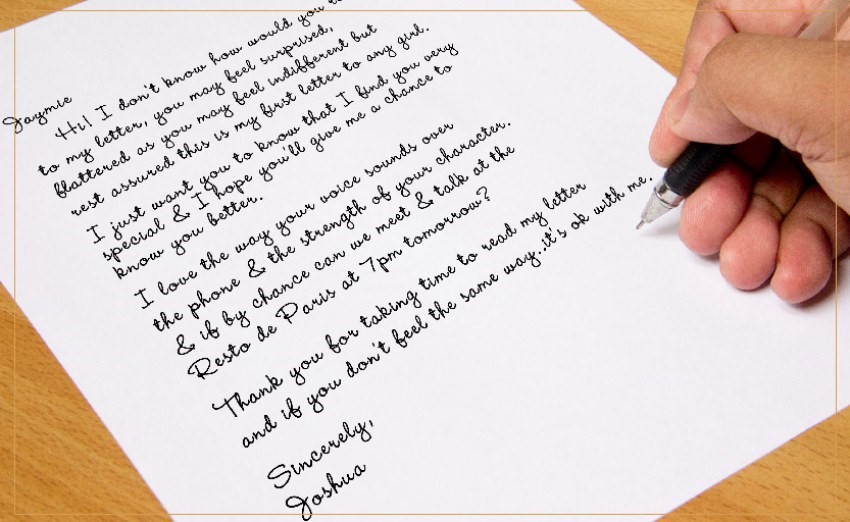 Jaymie
Hi! I don't know how would you
to my letter, you may feel surprised,
flattered as you may feel indifferent but
rest assured this is my first letter to any girl.
I just want you to know that I find you very
special & I hope you'll give me a chance to
know you better.
I love the way your voice sounds over
the phone & the strength of your character.
& if by chance can we meet & talk at the
Resto de Paris at 7pm tomorrow?
Thank you for taking time to read my letter
and if you don't feel the same way...it's ok with me.
Sincerely,
Joshua